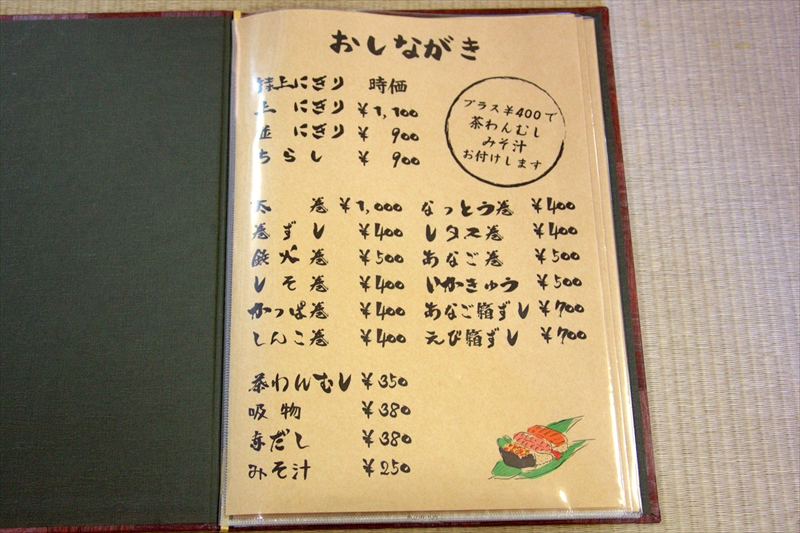 おしながき
特上にぎり 時価
上 にぎり ¥1,100
並 にぎり ¥ 900
ちらし ¥ 900
プラス¥400で
茶わんむし
みそ汁
お付けします
太 巻 ¥1,000
巻ずし ¥400
鉄火巻 ¥500
しそ巻 ¥400
かっぱ巻 ¥400
しんこ巻 ¥400
なっとう巻 ¥400
レタス巻 ¥400
あなご巻 ¥500
いかきゅう ¥500
あなご箱ずし ¥700
えび箱ずし ¥700
茶わんむし ¥350
吸物 ¥380
赤だし ¥380
みそ汁 ¥250